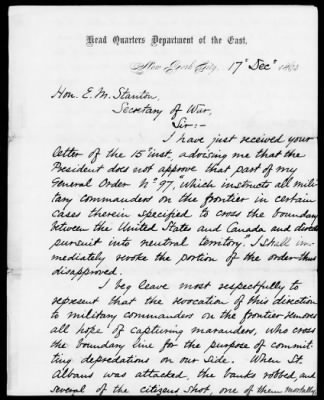 Head Quarters Department of the East.
New York City, 17" Dec" 186
Hon. E. M. Stanton,
Secretary of War,
Sir:-
I have just received your
letter of the 15" inst, advising me that the
President does not approve that part of my
General Order No 97, which instructs all mili-
tary commanders on the frontier in certain
cases therein specified to cross the boundary
between the United States and Canada and direct
pursuit into neutral territory." I shall im-
mediately revoke the portion of the order thus
disapproved.
I beg leave most respectfully to
represent that the revocation of this direction
to military commanders on the frontier removes
all hope of capturing marauders, who cross
the boundary line for the purpose of commit-
ting depredations on our side. When St.
Albans was attacked, the banks robbed, and
several of the citizens shot, one of them mortally